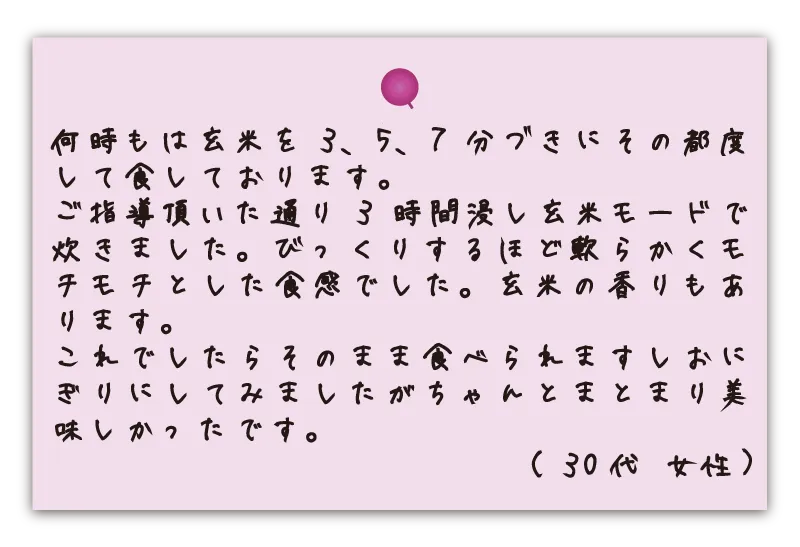 何時もは玄米を3、5、7分づきにその都度
して食しております。
ご指導頂いた通り3時間浸し玄米モードで
炊きました。びっくりするほど軟らかくモ
チモチとした食感でした。玄米の香りもあ
ります。
これでしたらそのまま食べられますしおに
ぎりにしてみましたがちゃんとまとまり美
味しかったです。
(30代 女性)